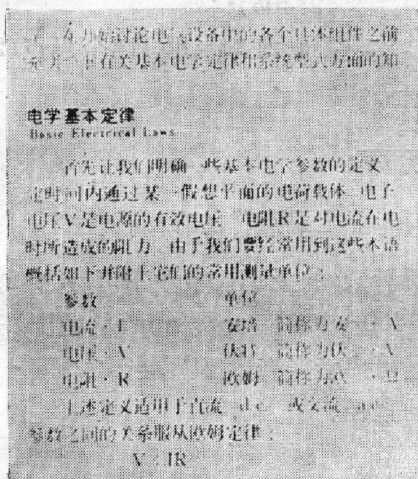 在开始讨论电气设备中的各个具体组件之前
下有关基本电学定律和系统型式方面的知
电学基本定律
Basic Electrical Laws
首先让我们明确一些基本电学参数的定义
定时间内通过某一假想平面的电荷载体 电子
电压V是电源的有效电压 电阻R是对电流在电
时所造成的阻力 由于我们要经常用到这些术语
概括如下并附上它们的常用测量单位:
参数 单位
电流·I 安培 简称为安 A
电压·V 伏特 简称为伏 V
电阻·R 欧姆 简称为欧 Ω
上述定义适用于直流 d.c. 或交流
参数之间的关系服从欧姆定律:
V=IR